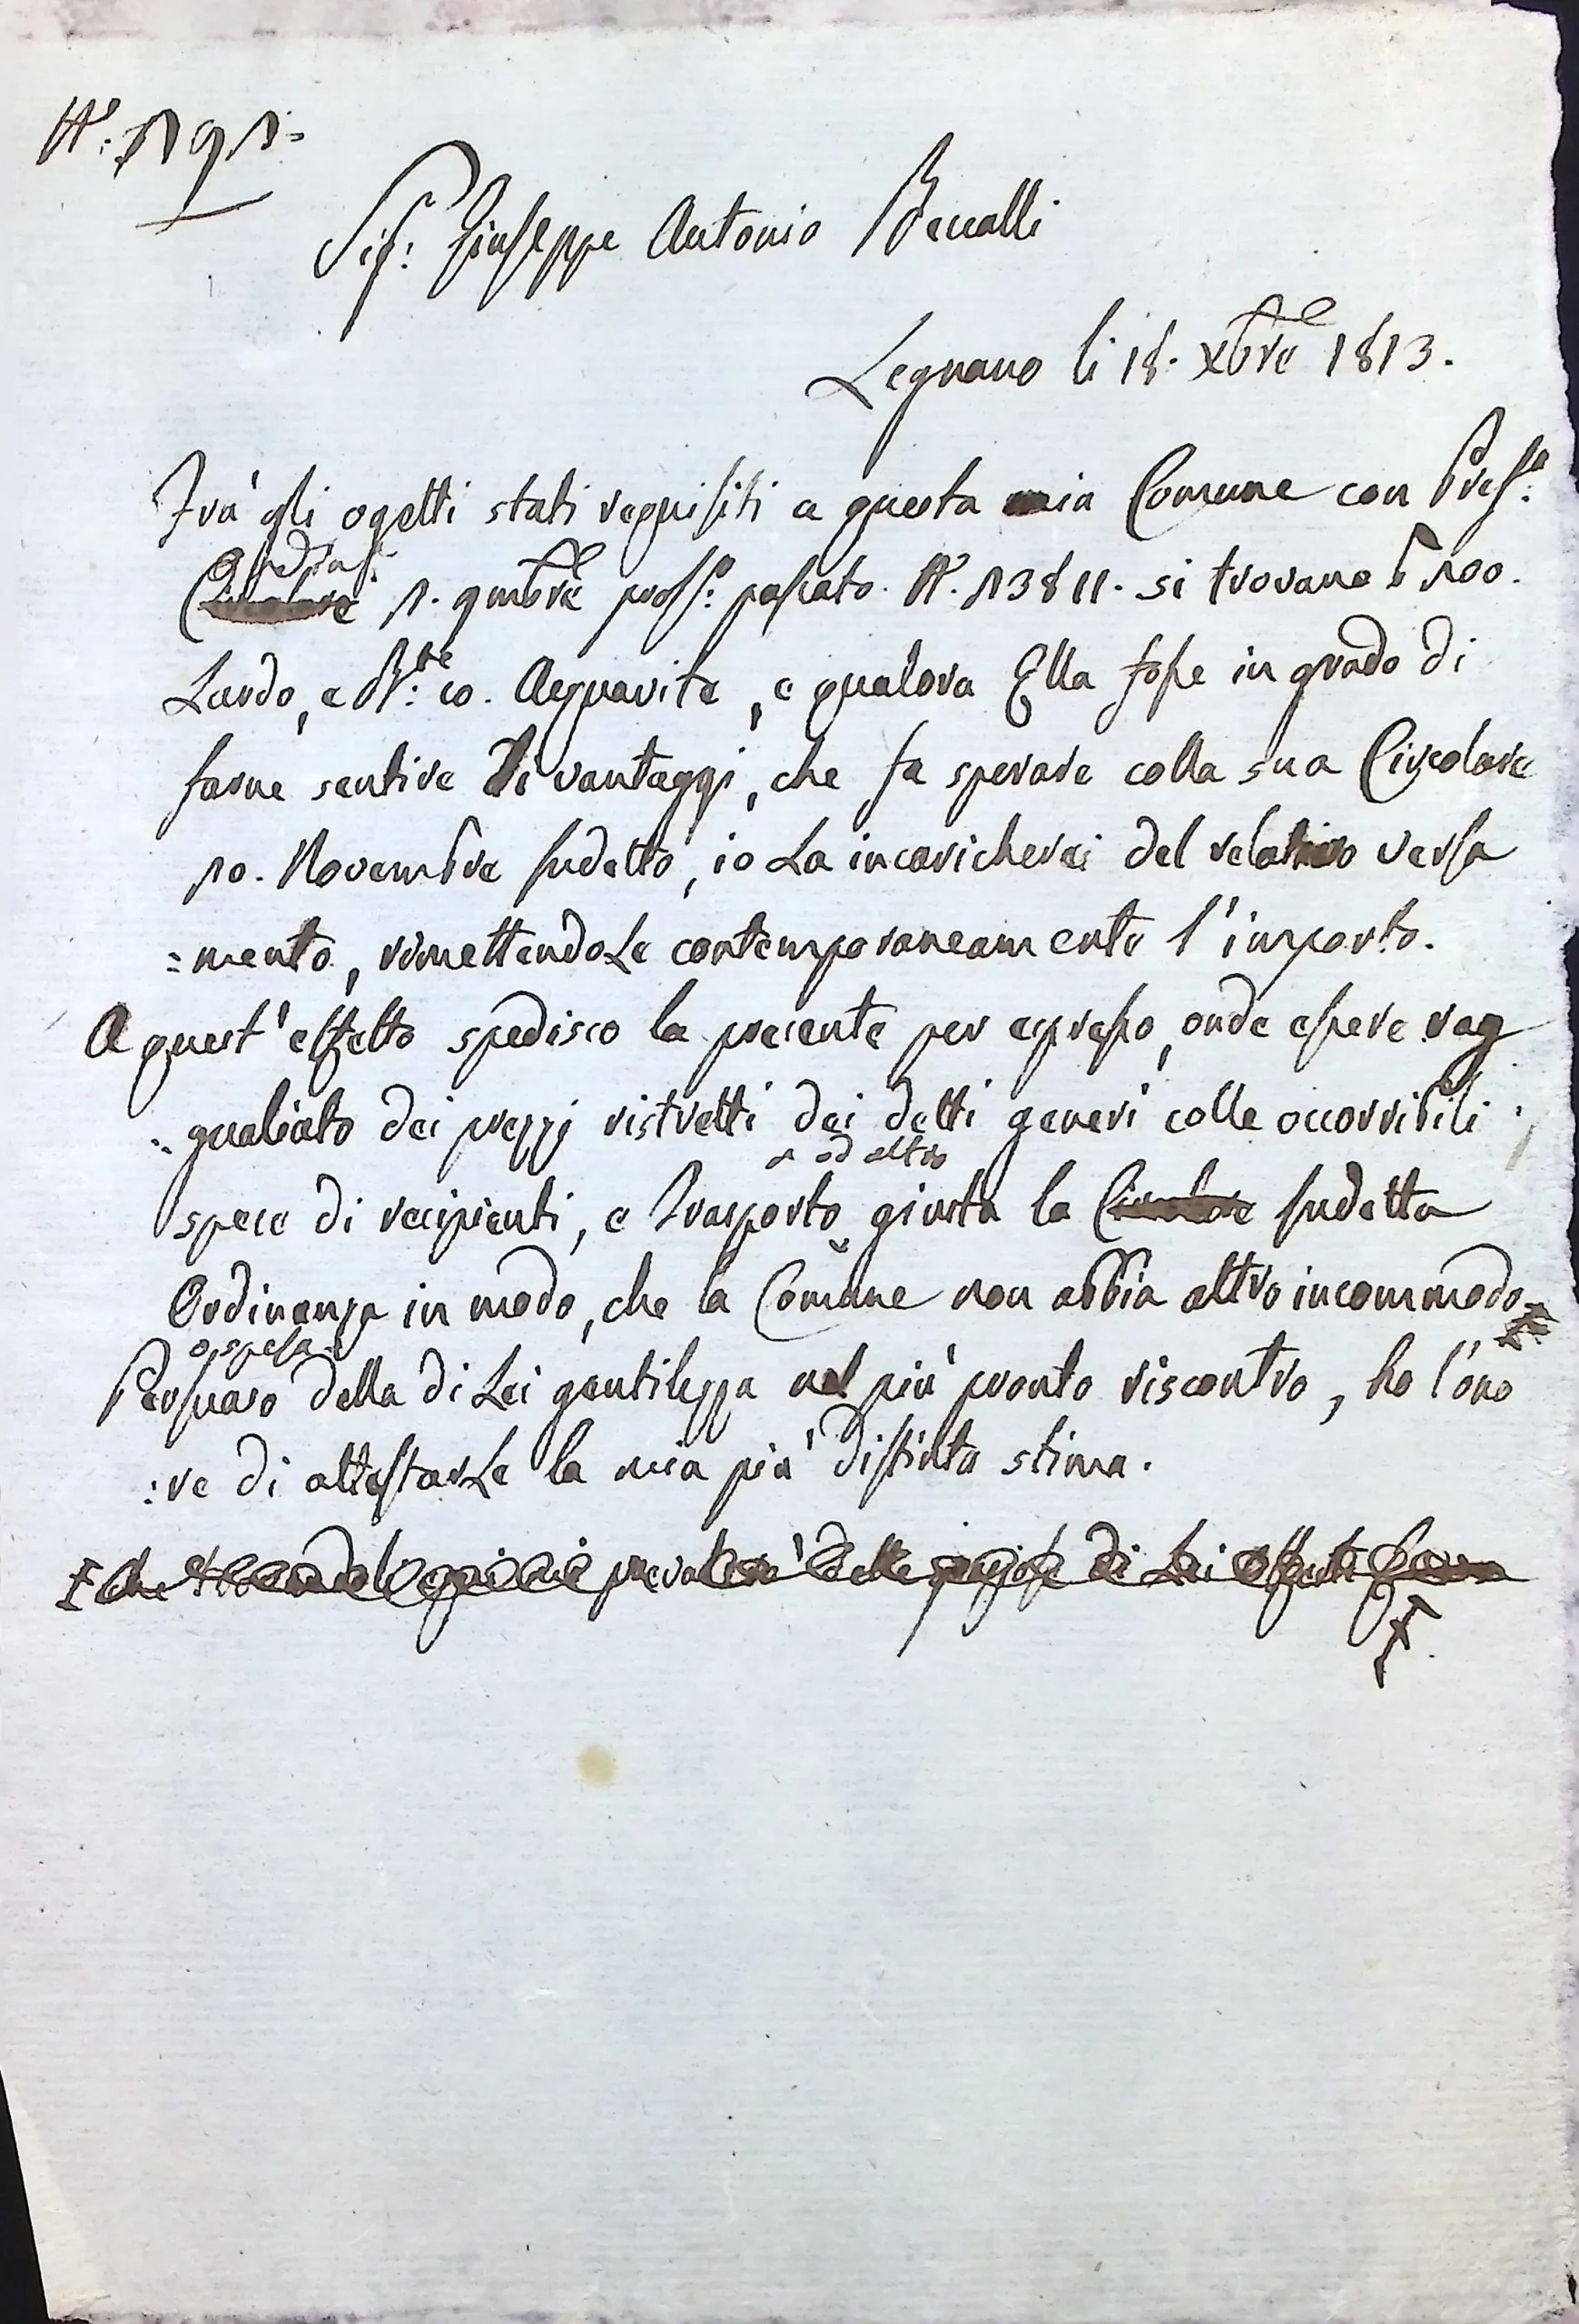 N.° 292
Sig.r Giuseppe Antonio Beccalli
Legnano li 18. Xbre 1813.
Frà gli ogetti stati requisiti a questa mia Comune con Pref.a
Ordinaz.
Circolare 2. 9mbre pross.o passato N.° 23811. si trovano ℔ 200.
Lardo, e B.te 10. Acquavite, e qualora Ella fosse in grado di
farne sentire di vantaggi, che fa sperare colla sua Circolare
20. Novembre sudetto, io La incaricherei del relativo versa
=mento, rimettendoLe contemporaneamente l'importo.
A quest'effetto spedisco la presente per espresso, onde essere rag
=gualiato dei prezzi ristretti dei detti generi colle occorribili
o ad altro
spese di recipienti, e Trasporto giusta la Circolare sudetta
Ordinanza in modo, che la Comune non abbia altro incommodo
o spesa
Persuaso della di Lei gentilezza nel più pronto riscontro, ho l'ono
:re di attestarLe la mia più distinta stima.
che prevalerà delle di Lei offerte